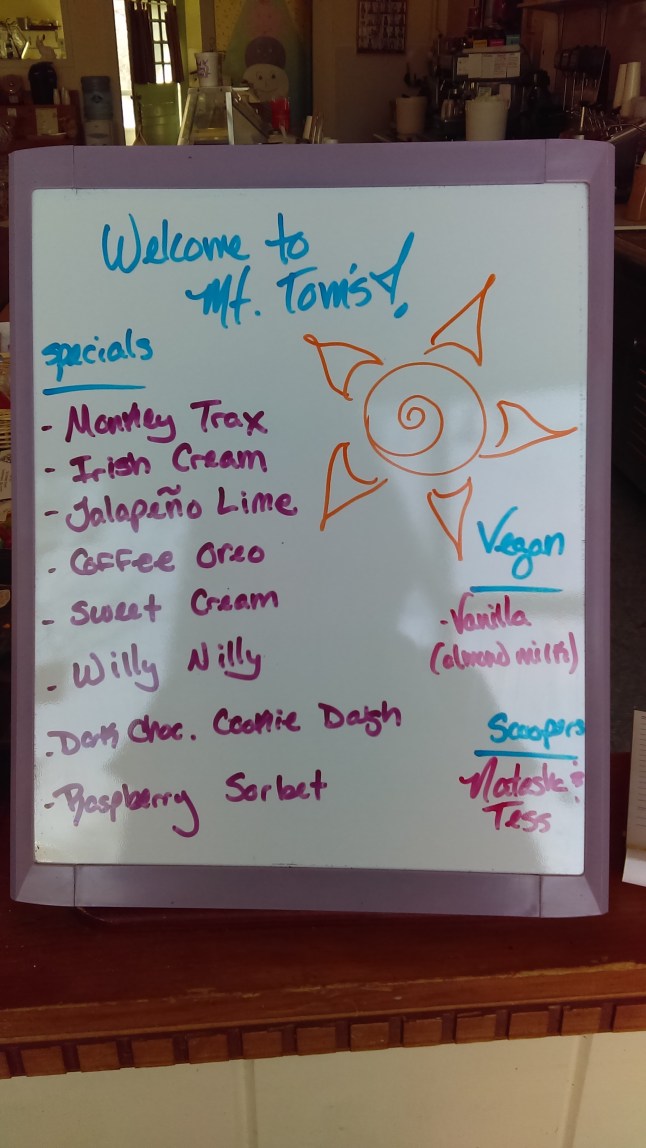 Welcome to
Mt. Tom's!
specials
- Monkey Trax
- Irish Cream
- Jalapeño Lime
- Coffee Oreo
- Sweet Cream
- Willy Nilly
- Dark Choc. Cookie Dough
- Raspberry Sorbet
Vegan
- Vanilla
(almond milk)
Scoopers
Tess